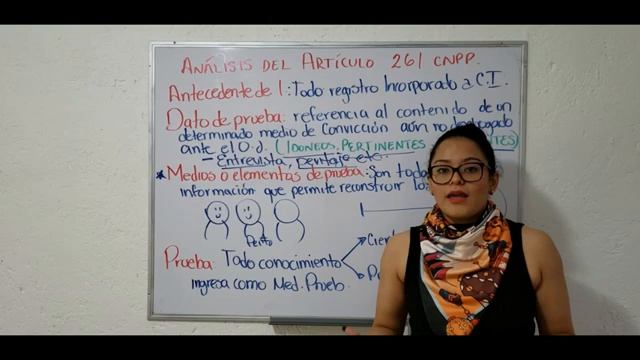 ANÁLISIS DEL ARTÍCULO 261 CNPP.
Antecedente de I: Todo registro Incorporado a C.I.
Dato de prueba: referencia al contenido de un
determinado medio de Convicción aún no desahogado
ante el O.J. (IDONEOS, PERTINENTES
- Entrevista, peritaje etc.
* Medios o elementos de prueba: Son toda
información que permite reconstruir los
Perito
Prueba: Todo conocimiento
ingresa como Med. Prueb.